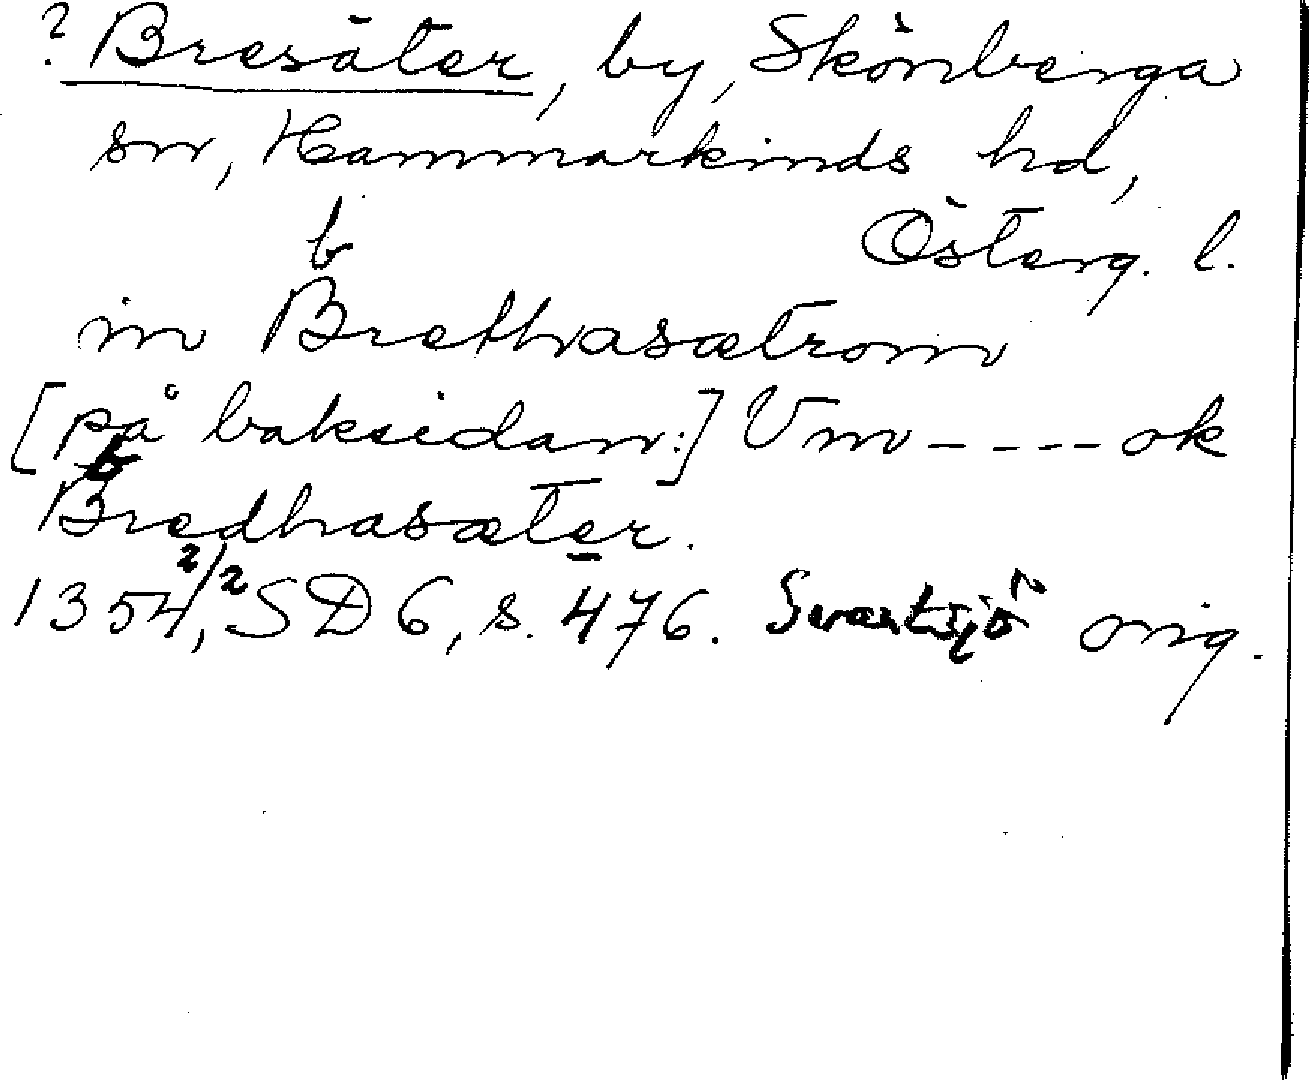 ? Bresäter, by, Skönberga
sn, Hammarkinds hd,
b Österg. l.
in Brethasætrom
[på baksidan:] Vm ---- ok
b
Bredhasæter.
1354 2/2, SD 6, s. 476. Svartsjö orig.